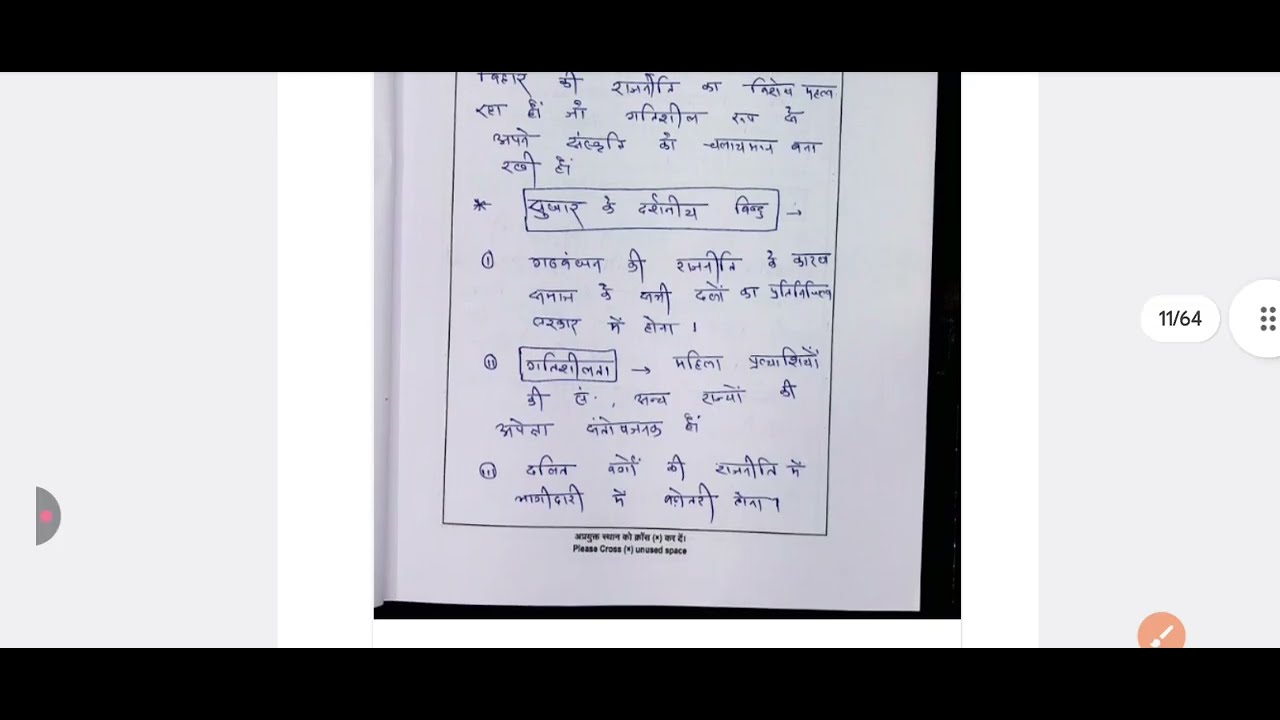 बिहार की राजनीति का विशेष महत्व
रहा हैं जो गतिशील रूप से
अपने संस्कृति को चलायमान बना
रखी हैं
* सुधार के दर्शनीय बिन्दु →
(i) गठबंधन की राजनीति के कारण
समाज के सभी दलों का प्रतिनिधित्व
सरकार में होना ।
(ii) गतिशीलता → महिला प्रत्याशियों
की सं॰, अन्य राज्यों की
अपेक्षा संतोषजनक हैं
(iii) दलित वर्गों की राजनीति में
भागीदारी में बढ़ोतरी होना।
अप्रयुक्त स्थान को क्रॉस (×) कर दें।
Please Cross (×) unused space
11/64